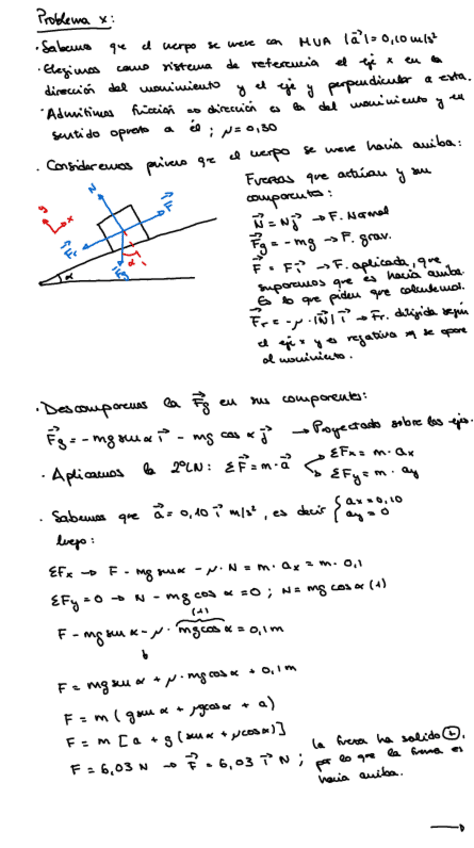 Problema x:
· Sabemos que el cuerpo se mueve con MUA |a⃗|=0,10 m/s²
· Elegimos como sistema de referencia el eje x en la
dirección del movimiento y el eje y perpendicular a esta.
· Admitimos fricción => dirección es la del movimiento y en
sentido opuesto a él ; μ=0,30
· Consideremos primero que el cuerpo se mueve hacia arriba:
Fuerzas que actúan y sus
componentes:
N⃗ = N j⃗ → F. Normal
F⃗g = - mg → F. grav.
F⃗ = F i⃗ → F. aplicada, que
suponemos que es hacia arriba.
Es lo que piden que calculemos.
F⃗r = - μ · |N⃗| i⃗ → Fr. dirigida según
el eje x y es negativa pq se opone
al movimiento.
y x N⃗ F⃗ F⃗r F⃗g α α
· Descomponemos la F⃗g en sus componentes:
F⃗g = - mg sen α i⃗ - mg cos α j⃗ → Proyectado sobre los ejes.
· Aplicamos la 2ª LN: ΣF⃗ = m · a⃗
ΣFx = m · ax
ΣFy = m · ay
· Sabemos que a⃗ = 0,10 i⃗ m/s², es decir { ax = 0,10
ay = 0
luego:
ΣFx → F - mg sen α - μ · N = m · ax = m · 0,1
ΣFy = 0 → N - mg cos α = 0 ; N = mg cos α (1)
(1)
F - mg sen α - μ · mg cos α = 0,1 m
F = mg sen α + μ · mg cos α + 0,1 m
F = m ( g sen α + μg cos α + a)
F = m [ a + g ( sen α + μ cos α)]
F = 6,03 N → F⃗ = 6,03 i⃗ N ;
la fuerza ha salido (+),
por lo que la fuerza es
hacia arriba.
→